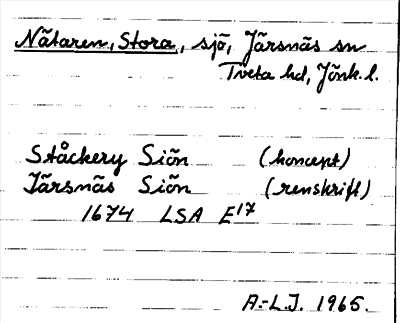 Nätaren, Stora, sjö, Järsnäs sn
Tveta hd, Jönk. l.
Ståckery Siön (koncept)
Järsnäs Siön (renskrift)
1674 LSA E17
A.-L.J. 1965.